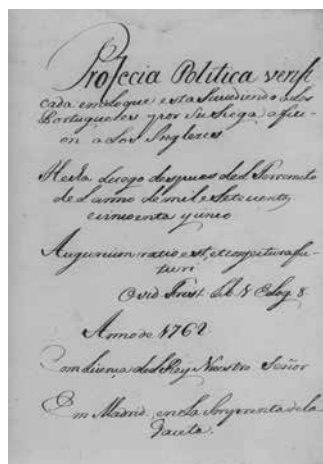 Profecia Politica verifi
cada en lo que esta sucediendo a los
Portugueses y por su ciega aficí-
on a los Ingleses
Hecha luego despues del Terremoto
del anno de mil e sete cento
cincoenta y cinco
Augurium ratio est, et conjectura fu-
turi
Ovid Trist. Lib 1 Eleg. 8
Anno de 1762
Com licencia del Rey Nuestro Señor
Em Madrid en la Imprenta de la
Gaceta.